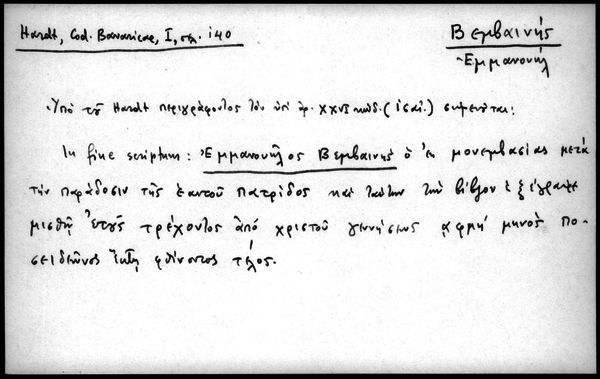 Hardt, Cod. Bavaricae, I, σελ. 140
Βεμβαινής
Ἐμμανουήλ
Ὑπὸ τοῦ Hardt περιγράφοντος τὸν ὑπ' ἀρ. XXVI κώδ. ( ) σημειοῦται:
In fine scriptum: Ἐμμανουῆλος Βεμβαινής ὁ ἐκ μονεμβασίας μετὰ
τὴν παράδοσιν τῆς ἑαυτοῦ πατρίδος καὶ ταύτην τὴν βίβλον ἐξέγραψε
μισθῷ ἔτους τρέχοντος ἀπὸ χριστοῦ γεννήσεως ͵αφμῃ μηνὸς Πο-
σειδεῶνος ἕκτῃ φθίνοντος τέλος.